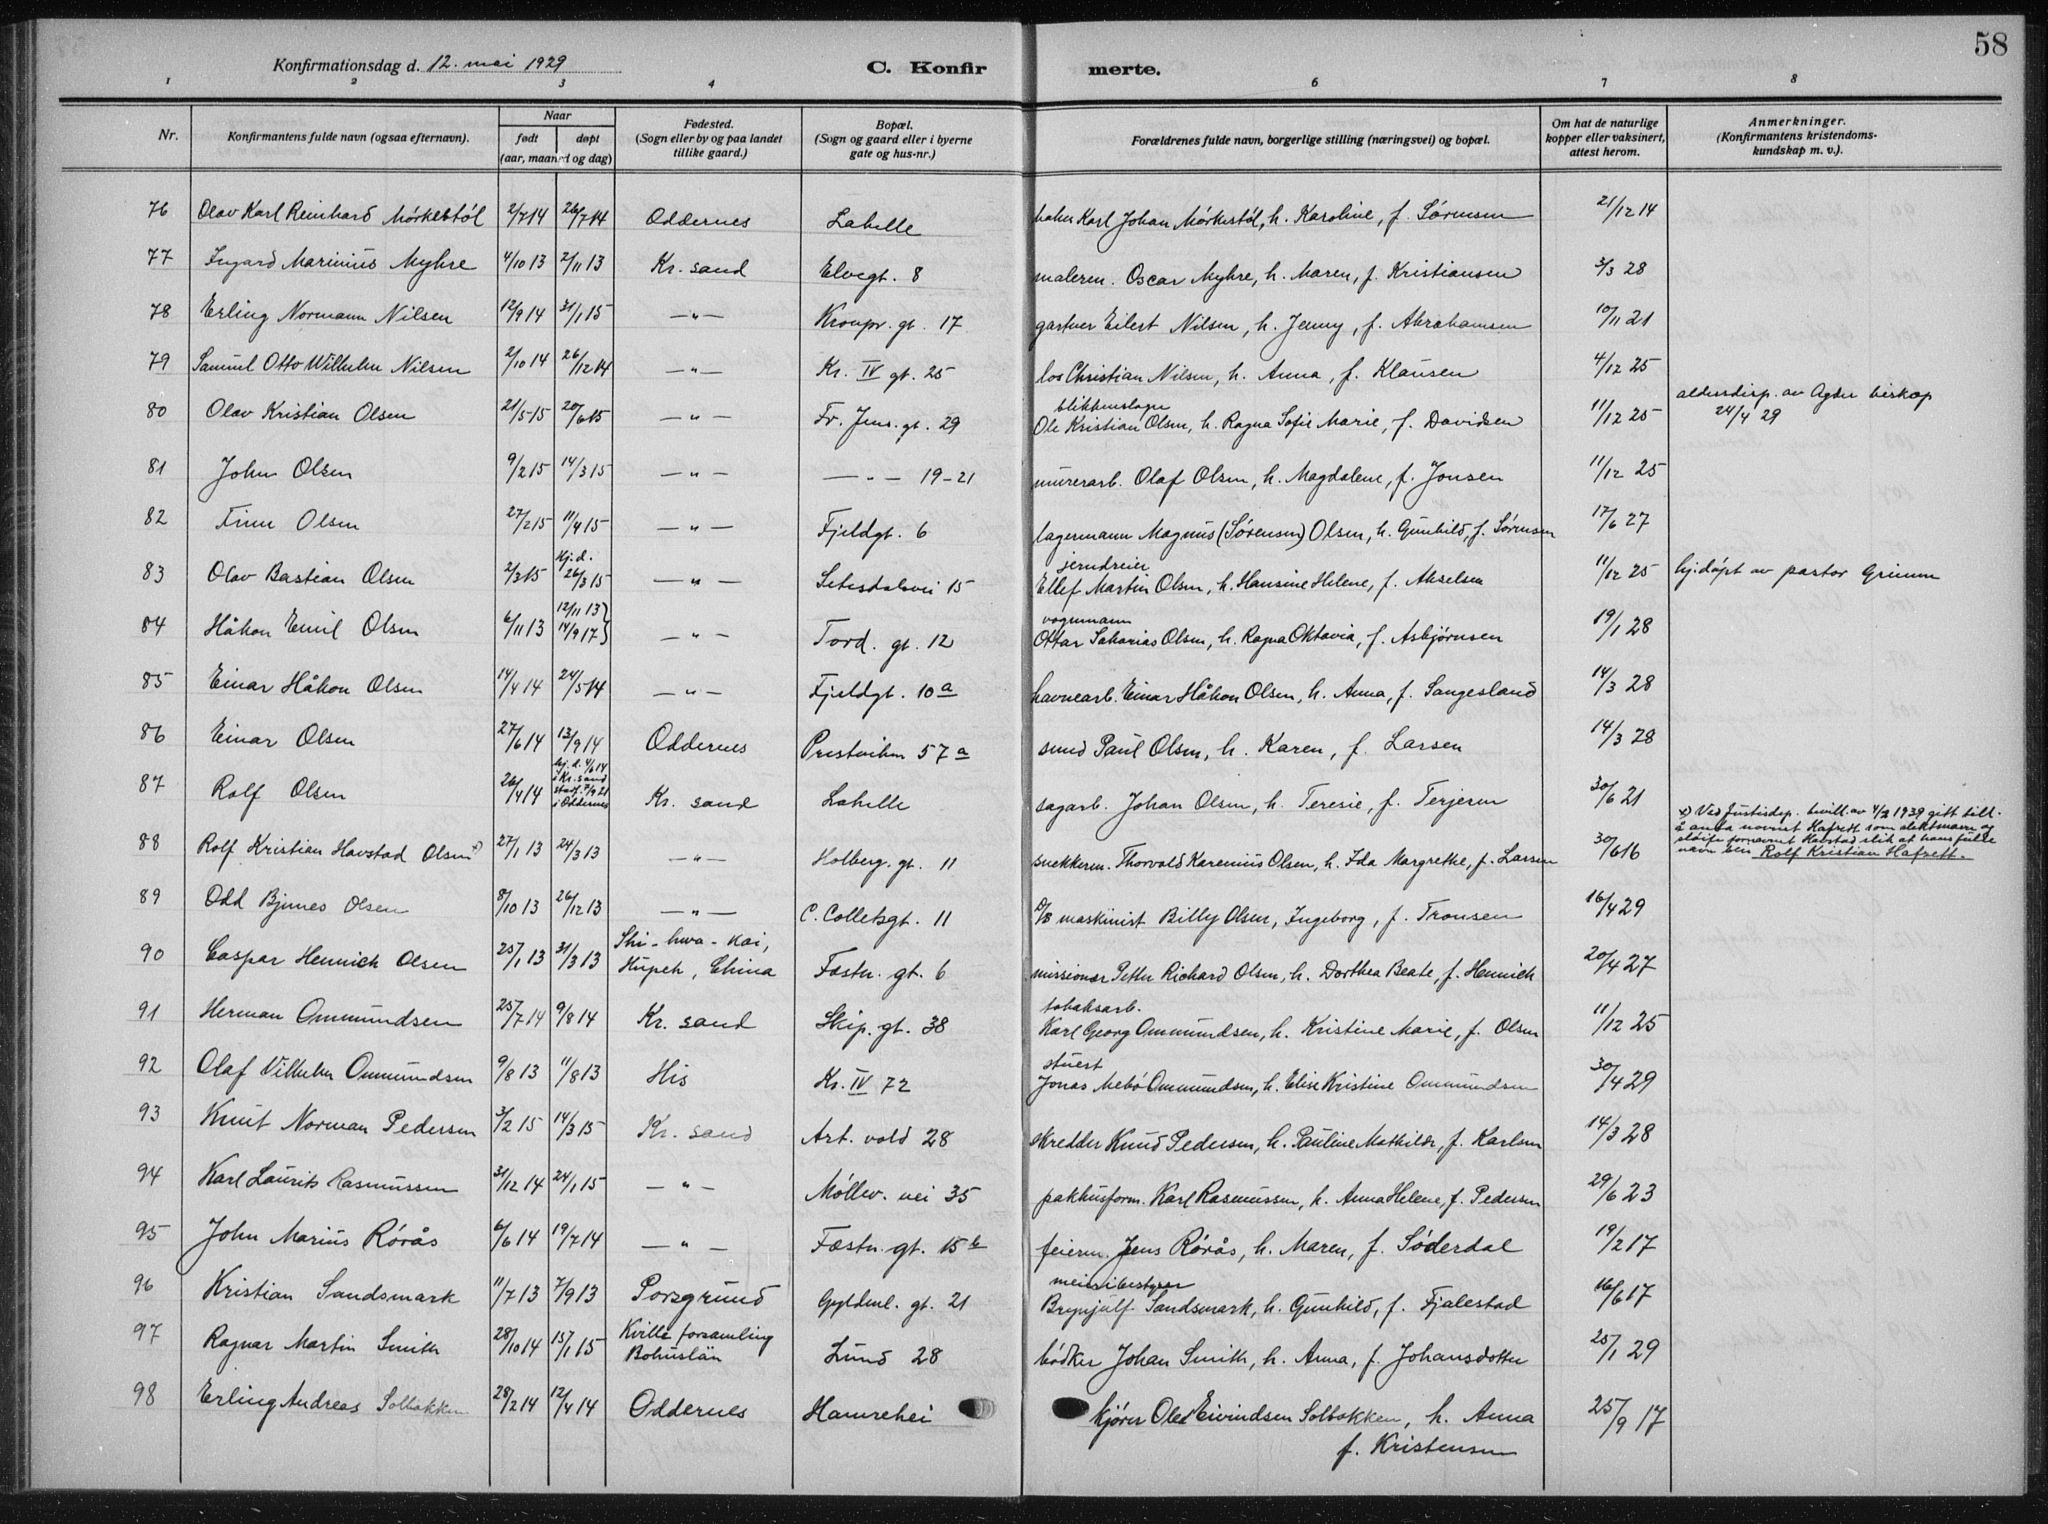 58
Konfirmationsdag d. 12. mai 1929
C. Konfir merte.
1 2 3 4 6 7 8
Nr.
Konfirmantens fulde navn (ogsaa efternavn).
Naar
født døpt
(aar, maaned og dag)
Fødested.
(Sogn eller by og paa landet
tillike gaard.)
Bopæl.
(Sogn og gaard eller i byerne
gate og hus-nr.)
Forældrenes fulde navn, borgerlige stilling (næringsvei) og bopæl.
Om hat de naturlige
kopper eller vaksinert,
attest herom.
Anmerkninger.
(Konfirmantens kristendoms-
kundskap m. v.).
76 Olav Karl Reinhard Mørkestøl 2/7 14 26/7 14 Oddernes Lahelle Karl Johan Mørkestøl, h. Karoline, f. Sørensen 21/12 14
77 Ingard Marinius Myhre 4/10 13 2/11 13 Kr. sand Elvegt. 8 malerm. Oscar Myhre, h. Maren, f. Kristiansen 3/3 28
78 Erling Normann Nilsen 12/9 14 31/1 15 — " — Kronpr. gt. 17 gartner Eilert Nilsen, h. Jenny, f. Abrahamsen 10/11 21
79 Samuel Otto Wilhelm Nilsen 2/10 14 26/12 14 — " — Kr. IV gt. 25 los Christian Nilsen, h. Anna, f. Klausen 4/12 25
80 Olav Kristian Olsen 21/5 15 20/6 15 — " — Fr. Jens. gt. 29 blikkenslager
Ole Kristian Olsen, h. Ragna Sofie Marie, f. Davidsen 11/12 25 aldersdisp. av Agder biskop
24/4 29
81 John Olsen 9/2 15 14/3 15 — " — — " — 19-21 murerarb. Olaf Olsen, h. Magdalene, f. Jonsen 11/12 25
82 Finn Olsen 27/2 15 11/4 15 — " — Fjeldgt. 6 lagermann Magnus (Sørensen) Olsen, h. Gunhild, f. Sørensen 17/6 27
83 Olav Bastian Olsen 2/3 15 Hj. d. 26/3 15 — " — Setesdalsvei 15 jerndreier
Ellef Martin Olsen, h. Hansine Helene, f. Akselsen 11/12 25 hj.døpt av pastor Grimm
84 Håkon Emil Olsen 6/11 13 12/11 13} 14/9 17} — " — Tord. gt. 12 vognmann
Ottar Sakarias Olsen, h. Ragna Oktavia, f. Asbjørnsen 19/1 28
85 Einar Håkon Olsen 14/4 14 24/5 14 — " — Fjeldgt. 10 a havnearb. Einar Håkon Olsen, h. Anna, f. Sangesland 14/3 28
86 Einar Olsen 27/6 14 13/9 14 Oddernes Prestvikn 57 a smed Paul Olsen, h. Karen, f. Larsen 14/3 28
87 Rolf Olsen 26/4 14 hj. d. 4/6 14
i Kr. sand
stadf. 7/9 21
i Oddernes Kr. sand Lahelle sagarb. Johan Olsen, h. Teresie, f. Terjesen 30/6 21
88 Rolf Kristian Havstad Olsen x) 27/1 13 24/3 13 — " — Holberg. gt. 11 snekkerm. Thorvald Karenius Olsen, h. Ida Margrethe, f. Larsen 30/6 16
x) Ved Justisdep. bevill. av 4/2 1939 gitt till.
å anta navnet Hafrett som slektsnavn og
sløife fornavnet Havstad slik at hans fulle
navn blir Rolf Kristian Hafrett.
89 Odd Bjnnes Olsen 8/10 13 26/12 13 — " — C. Colletsgt. 11 D/S maskinist Billy Olsen, Ingeborg, f. Tronsen 16/4 29
90 Caspar Hennich Olsen 25/1 13 31/3 13 Shi-hwa-kai,
Hupeh, China Fæstn. gt. 6 missionær Petter Richard Olsen, h. Dorthea Beate, f. Hennich 20/4 27
91 Herman Ommundsen 25/7 14 9/8 14 Kr. sand Skip. gt. 38 tobaksarb.
Karl Georg Ommundsen, h. Kristine Marie, f. Olsen 11/12 25
92 Olaf Vilhelm Ommundsen 9/8 13 11/8 13 His Kr. IV 72 stuert
Jonas Mebø Ommundsen, h. Elise Kristine Ommundsen 30/4 29
93 Knut Norman Pedersen 3/2 15 14/3 15 Kr. sand Art. vold 28 skredder Knud Pedersen, h. Pauline Mathilde, f. Karlsen 14/3 28
94 Karl Laurits Rasmussen 31/12 14 24/1 15 — " — Møllev. vei 35 pakhusform. Karl Rasmussen, h. Anna Helene, f. Pedersen 29/6 23
95 John Marius Rørås 6/6 14 19/7 14 — " — Fæstn. gt. 15 b feierm. Jens Rørås, h. Maren, f. Søderdal 19/2 17
96 Kristian Sandsmark 11/7 13 7/9 13 Porsgrund Gyldenl. gt. 21 meieribestyrer
Brynjulf Sandsmark, h. Gunhild, f. Fjalestad 16/6 17
97 Ragnar Martin Smith 28/10 14 15/1 15 Kville forsamling
Bohuslän Lund 28 bødker Johan Smith, h. Anna, f. Johansdotter 25/1 29
98 Erling Andreas Solbakken 28/2 14 12/4 14 Oddernes Hamrehei kjører Olaf Eivindsen Solbakken, h. Anna
f. Kristensen 25/9 17